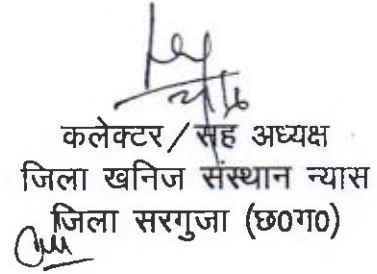 कलेक्टर / सह अध्यक्ष
जिला खनिज संस्थान न्यास
जिला सरगुजा (छ0ग0)